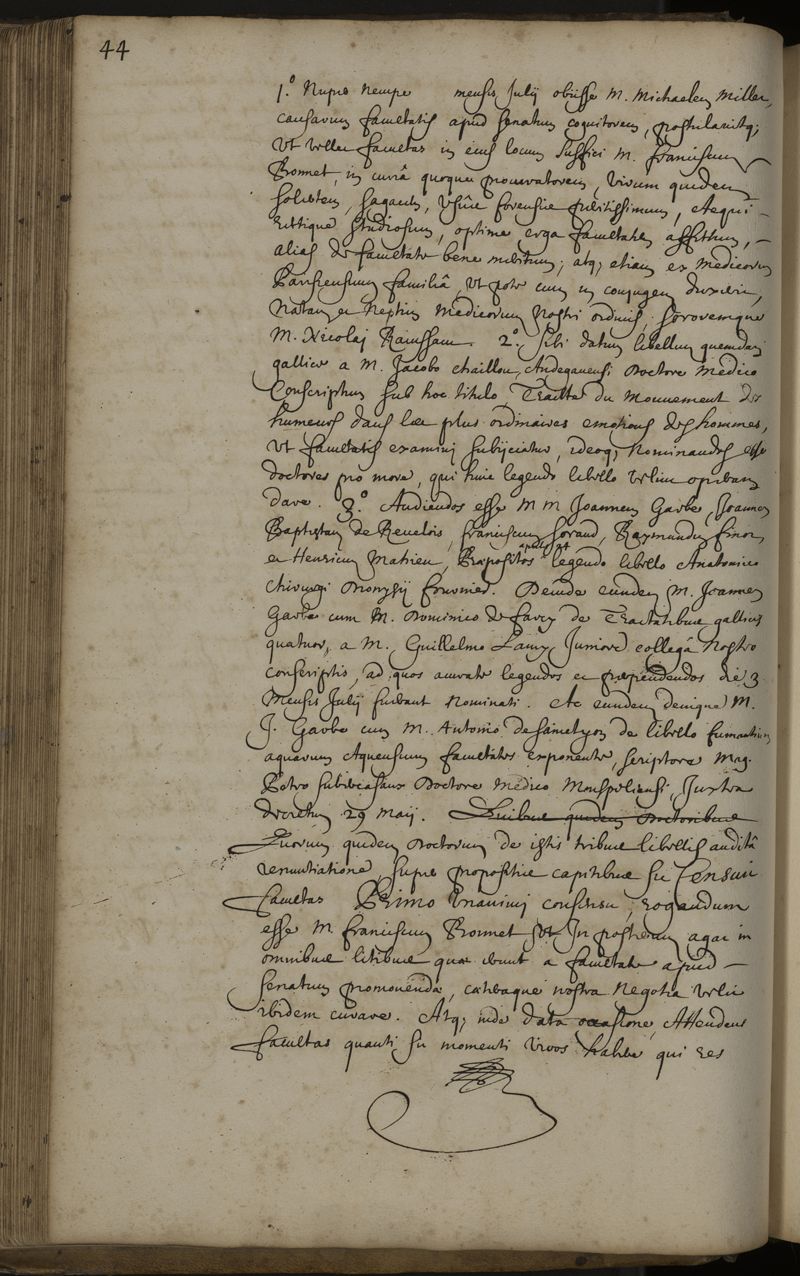 44
1.° Nupre nempe mensis Julij obiisse M. Michaelem Miller,
causarum facultatis apud senatum cognitorem, postularitq;
ut vellet facultas in eius locum suffici M. franciscum
Bonnet, in curiâ quoque procuratorem, virum quidem
solertem, sagacem, usûs forensis peritissimum, aequi-
rectique studiosum, optime erga facultatem affectum,
alias de facultate bene meritum; atq; etiam ex medicorum
Parisiensium familiâ, ut pote cum in conjugem duxerit,
natam et neptim medicorum nostri ordinis, sororemque
M. Nicolaj Rainssant. 2.° sibi datum libellum quemdam
gallice a M. Jacobo chaillou, Andegavensi Doctore medico
Conscriptum sub hoc titulo, Traitté du Mouvement des
humeurs dans les plus ordinaires emotions des hommes,
ut facultatis examini subijciatur, ideoq; nominandos esse
doctores pro more, qui huic legendo libello velint operam
dare. 3.° Audiendos esse M M Joannem Garbe, Joannem
Baptistam de Revelois, franciscum, Raymundum finot,
et Henricum Mahieu, Praepositos legendo libello Anatomico
chirurgi Dionysij fournier. Deinde eundem M. Joannem
Garbe cum M. Dominico de farcy de Tractatibus gallicis
quatuor, a M. Guillelmo Lamy Juniore collegâ nostro
conscriptis, ad quos accurate legendos et perpendendos die 3
Mensis Julij fuerant nominati. Ac eundem denique M.
J. Garbe cum M. Antonio de libello fumantium
aquarum Aquensium facultates exponente, scriptore Mag.
Petro Doctore medico Monspeliensi, Juxta
decretum 29 maij. Quibus quidem Doctoribus
Quorum quidem Doctorum de istis tribus libellis auditâ
renuntiatione, super propositis capitibus sic Censuit
facultas Primo unanimi consensu, rogandum
esse M. franciscum Bonnet ut In posterum agat in
omnibus litibus quae erunt a facultate apud
senatum promovendae, caeteraque nostra negotia velit
ibidem curare. Atq; inde data occasione, Attendens
facultas quanti sit momenti viros habere qui res